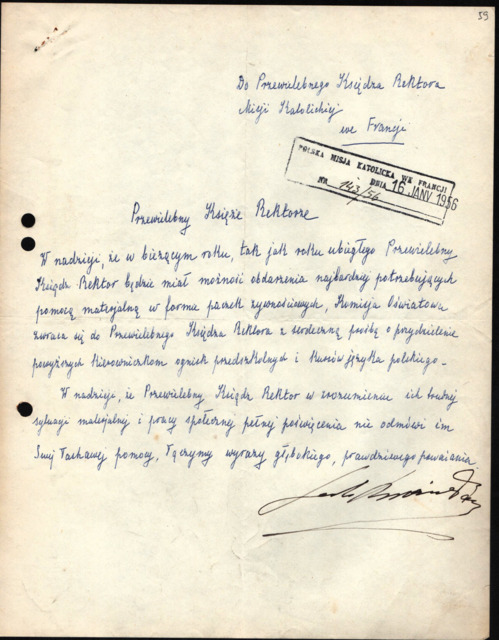 59
Do Przewielebnego Księdza Rektora
Misji Katolickiej
we Francji
POLSKA MISJA KATOLICKA WE FRANCJI
NR 143/56 DNIA 16 JANV 1956
Przewielebny Księże Rektorze
W nadzieji, że w bieżącym roku, tak jak roku ubiegłego Przewielebny
Ksiądz Rektor będzie miał możność obdarzenia najbardziej potrzebujących
pomocą materjalną w formie paczek żywnościowych, Komisja Oświatowa
zwraca się do Przewielebnego Księdza Rektora z serdeczną prośbą o przydzielenie
powyższych kierowniczkom ognisk przedszkolnych i kursów języka polskiego.-
W nadzieji, że Przewielebny Ksiądz Rektor w zrozumieniu ich trudnej
sytuacji materjalnej i pracy społecznej pełnej poświęcenia nie odmówi im
Swej łaskawej pomocy, łączymy wyrazy głębokiego, prawdziwego poważania.